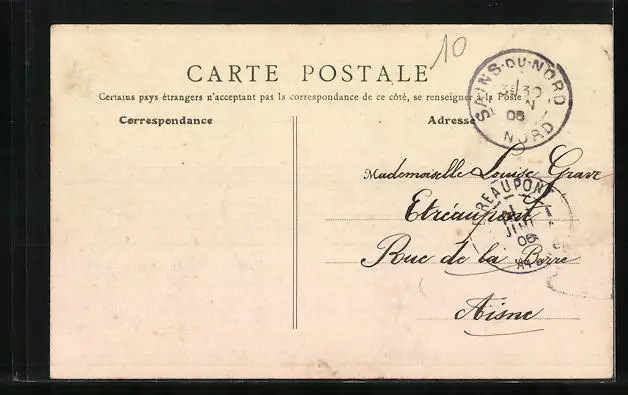 10
CARTE POSTALE
Certains pays étrangers n'acceptant pas la correspondance de ce côté, se renseigner à la Poste
Correspondance
Adresse
SAINS-DU-NORD
05
NORD
Mademoiselle Louise Grave
Etréaupont
Rue de la Barre
Aisne
REAUPONT
JUIN
05